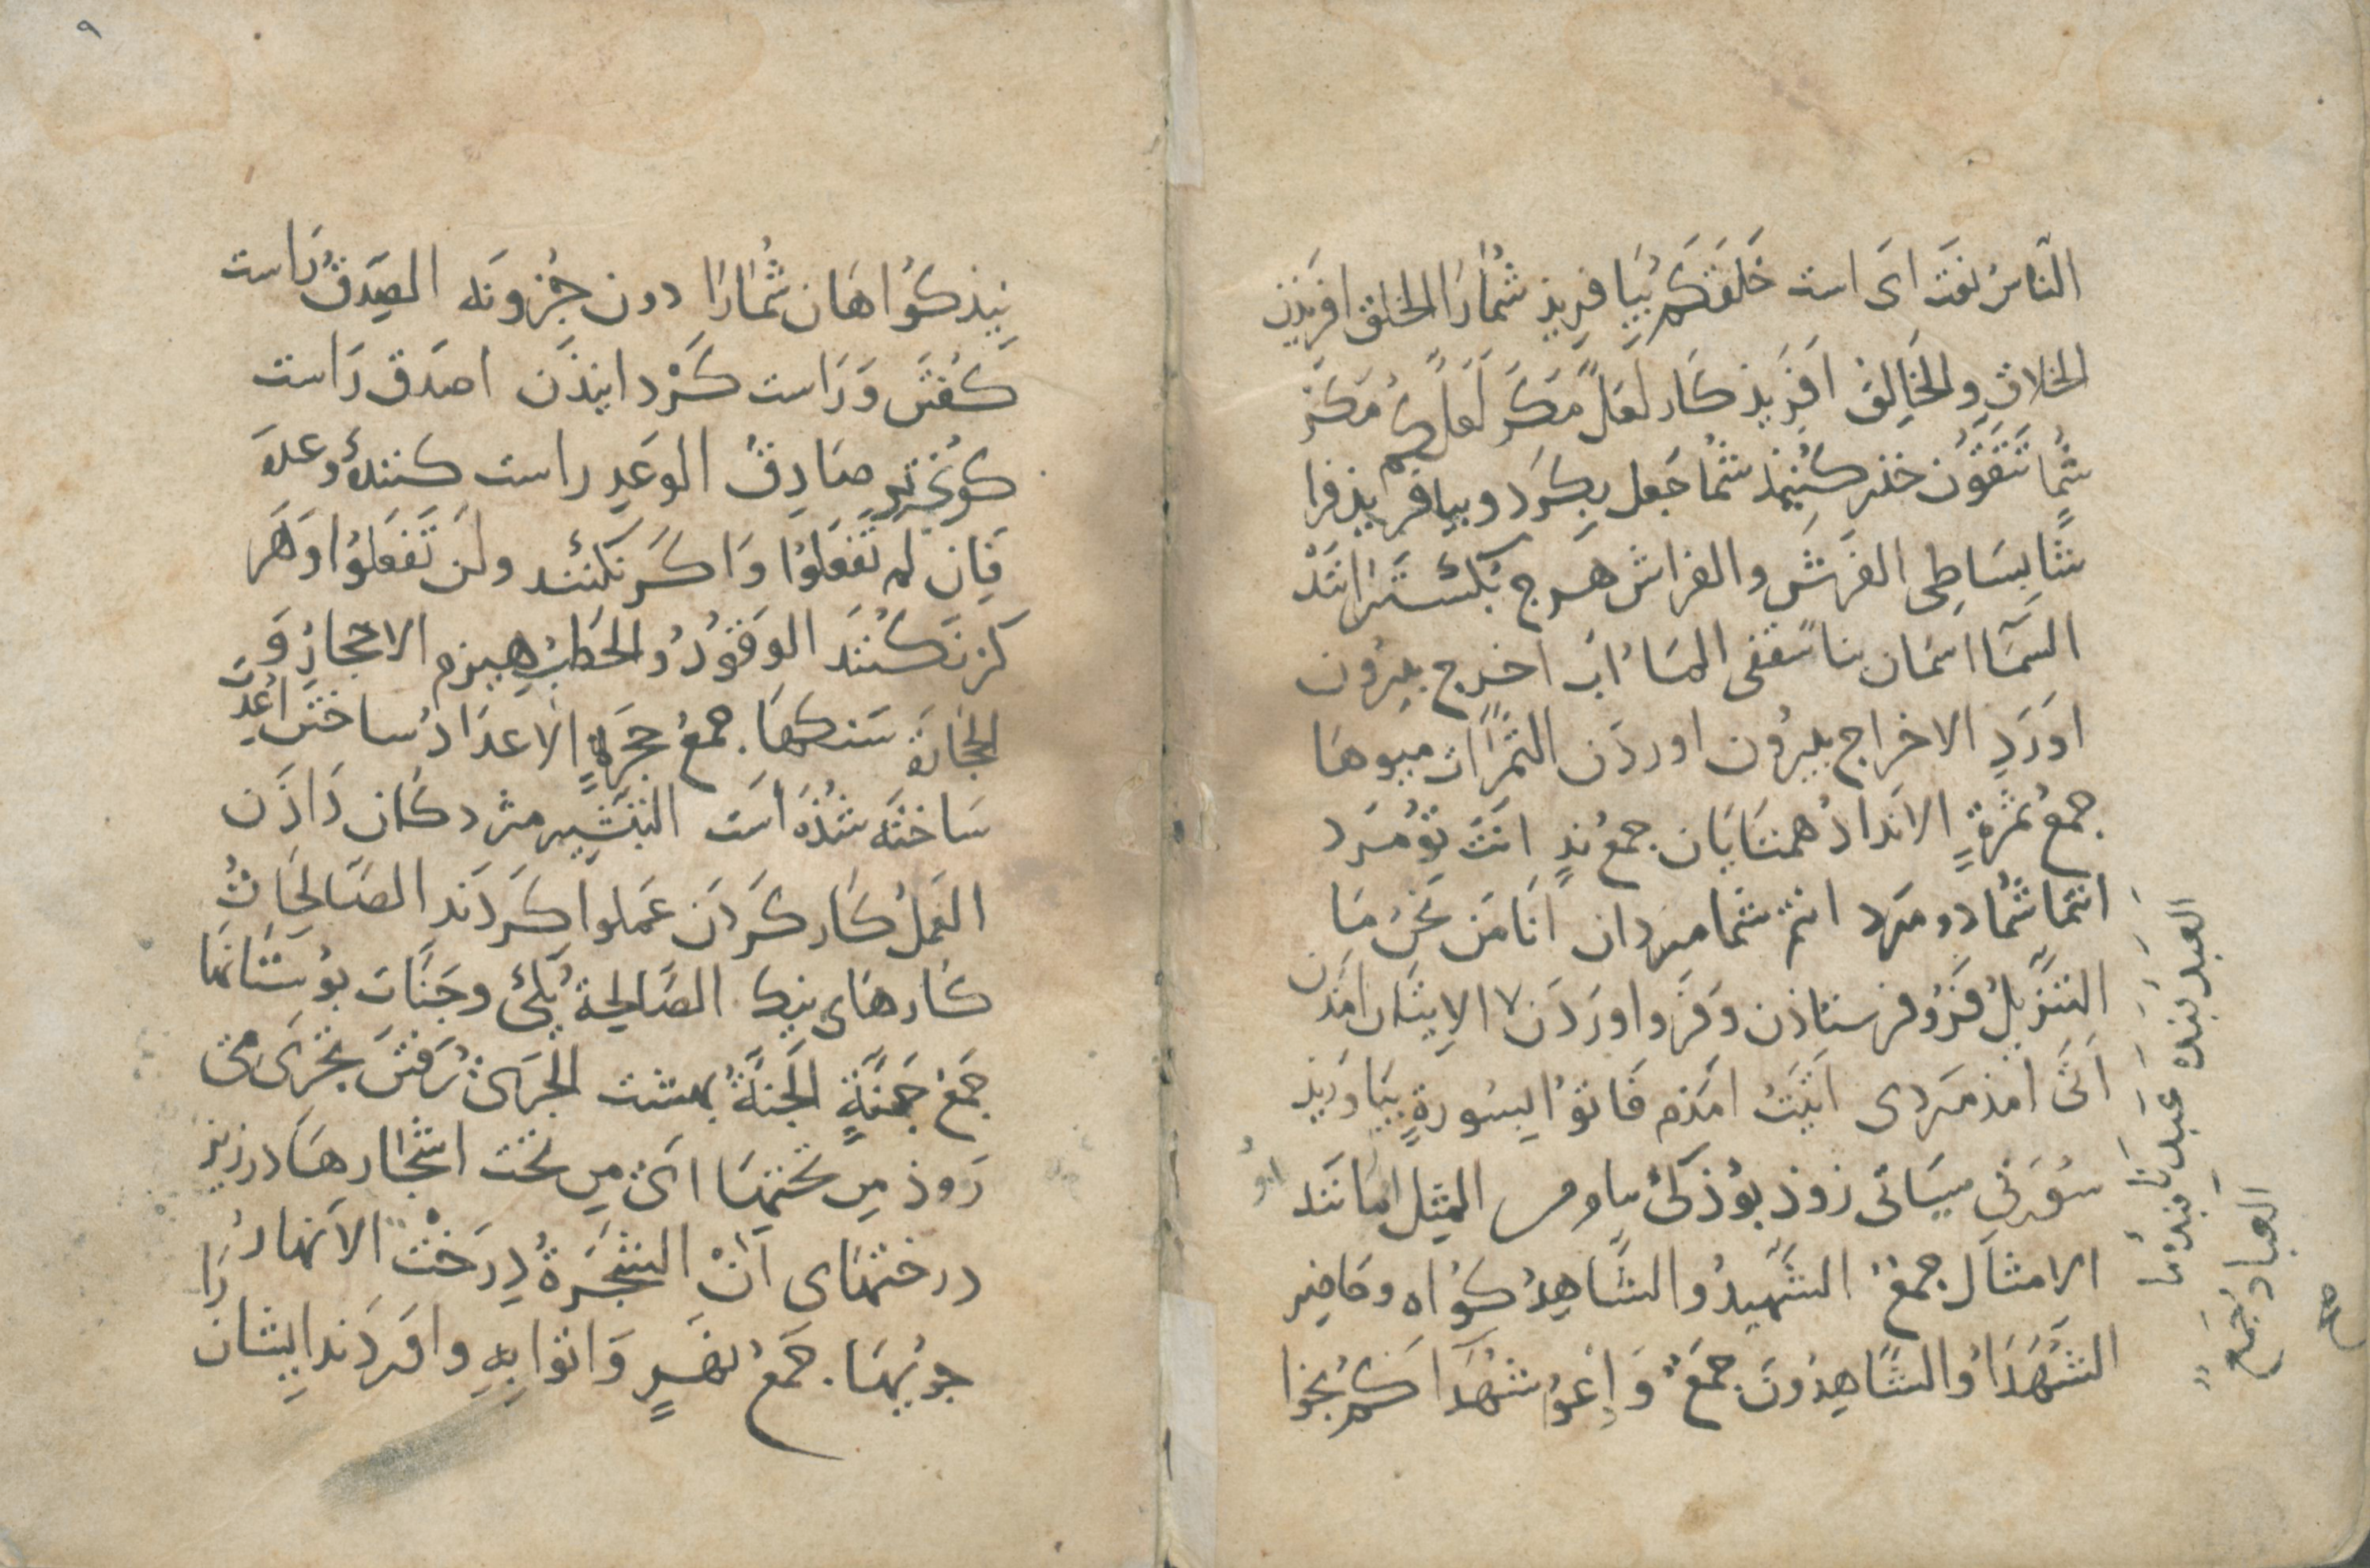 الناسُ نعَت اى است خَلَقَكُم بيَافريذ شُمارَا الخلق افريذن
الخلاق والخَالِق افَريذ كَار لعَلَّ مَكَر لَعَلَّكُم مَكَر
شُما تَتَّقُون حذر كُنيذ شُما جَعل بكَرد و بيافريذ فراشا
بسَاطِى الفَرش والفراش هرج بكُسترانَند
السَّمَآ اسمَان بنا سَقفى المَاء اب اخرج بيرُون
اورَدِ الاخراج بيرُون اوردَن الثمَرَات ميوهَا
جمعُ ثمَرةٍ الاندادُ همتايَان جمعُ ندٍ انتَ تو مَرد
انتما شُما دو مرد انتم شما مردان انا مَن نحنُ مَا
التنزِيلُ فرُو فرستاذن وَفرو اورَدَن الاِتيَان امَذن
اَتَى امَذ مَردى اَتَيتُ امَذم فَاتوُا بسُورةٍ بيَاوَريذ
سُورتى ميَائى زوذ بوُذكى المِثل مانَند
الامثَال جمعُ الشَّهِيدُ والشَّاهِدُ كوُاه وحَاضِر
الشُّهَدَاءُ والشَّاهِدُونَ جمعُ وَادعوُا شهَدَآءَكُم بخوا
العبد بنده عَبدنَا بندهٔ ما
العباد جَمع
نيذ كوُاهَان شُمارَا دون جُز وَنه الصِدقُ رَاست
كَفتَن وَرَاست كَرْدانِيذَن اصدَق رَاست
كوى تر صَادِقُ الوَعدِ راست كنندهٔ وعدَه
فَاِن لم تَفعَلوُا وَاكَر نكنند ولَن تَفعَلوُا وَهَر
كز نَكُنَند الوَقُودُ والحَطبُ هيزم الاحجَارُ وَ
الحجَارَة سَنكهَا جمعُ حجَرٍ الاعدَادُ ساختَن اعُدَّت
سَاختَه شُذَه اَست التبشِير مژدكَان دَاذَن
العَمَلُ كَار كَردَن عَملوا كَردَند الصَالحَاتُ
كارهَاى نيك الصَّالحَة يكى وجَنَّات بوُستَانهَا
جَمعُ جَنَّةٍ الجَنَّةُ بهشت الجَرىُ رَفتَن تجْرَى مى
رَوذ مِن تحتِهَا اىْ مِن تحت اشجَارهَا در زير
درختهَاى آنْ الشَجَرةُ دِرَخْت الاَنهَارُ
جويهَا جَمعُ نهَرٍ وَاتوا بِهِ واورَدَند ايِشان رَا